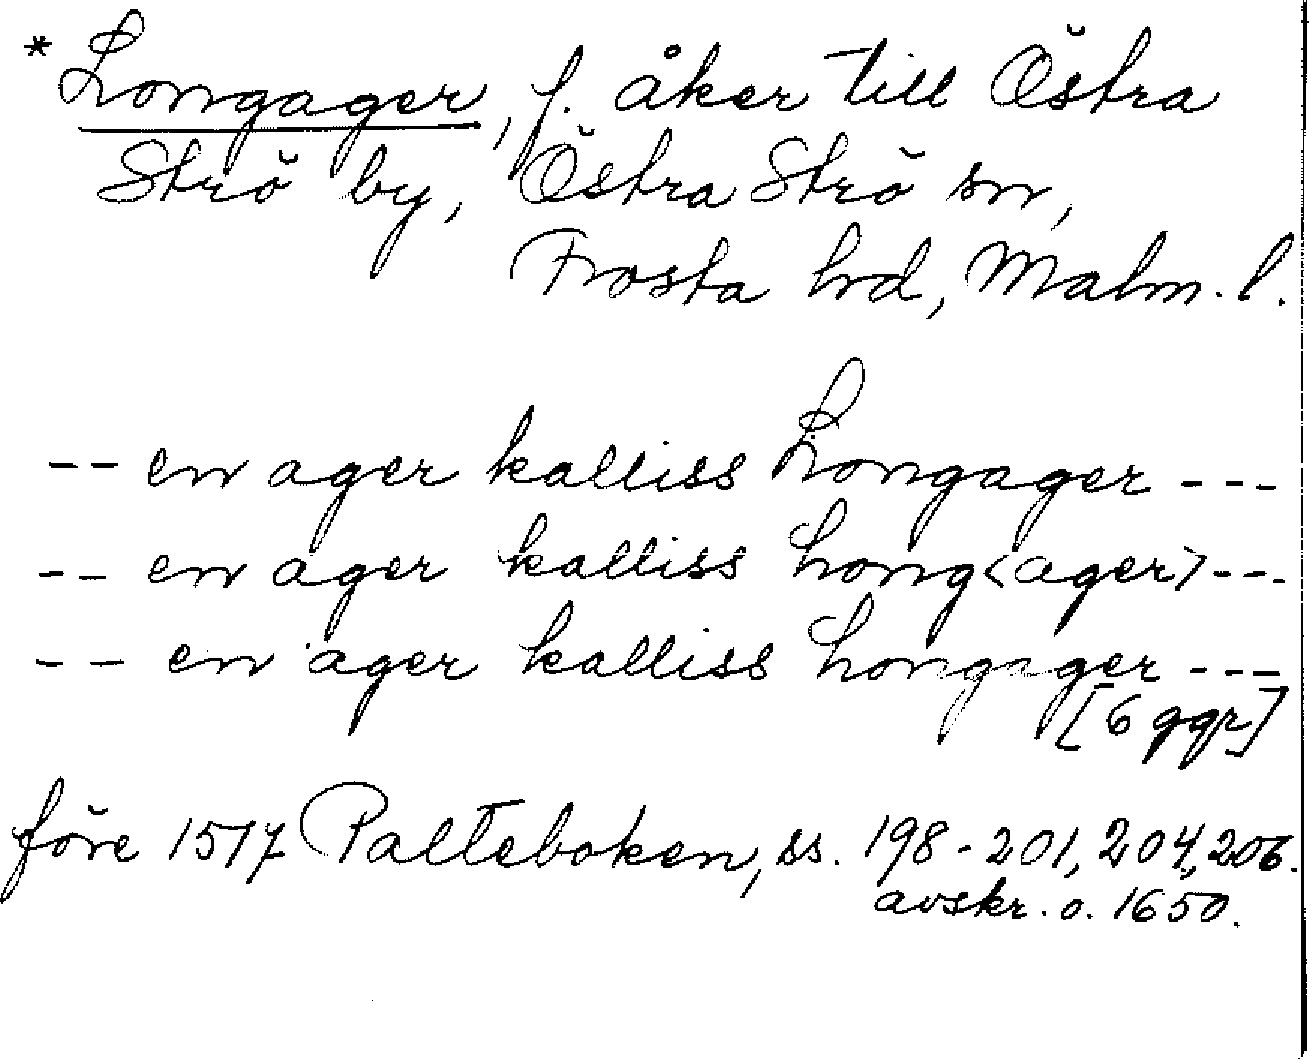 * Longager, f. åker till Östra
Strö by, Östra Strö sn,
Frosta hd, Malm. l.
-- en ager kalliss Longager ---
-- en ager kalliss long<ager> ---
-- en ager kalliss longager ---
[6 ggr]
före 1517 Palteboken, ss. 198-201, 204, 206.
avskr. o. 1650.